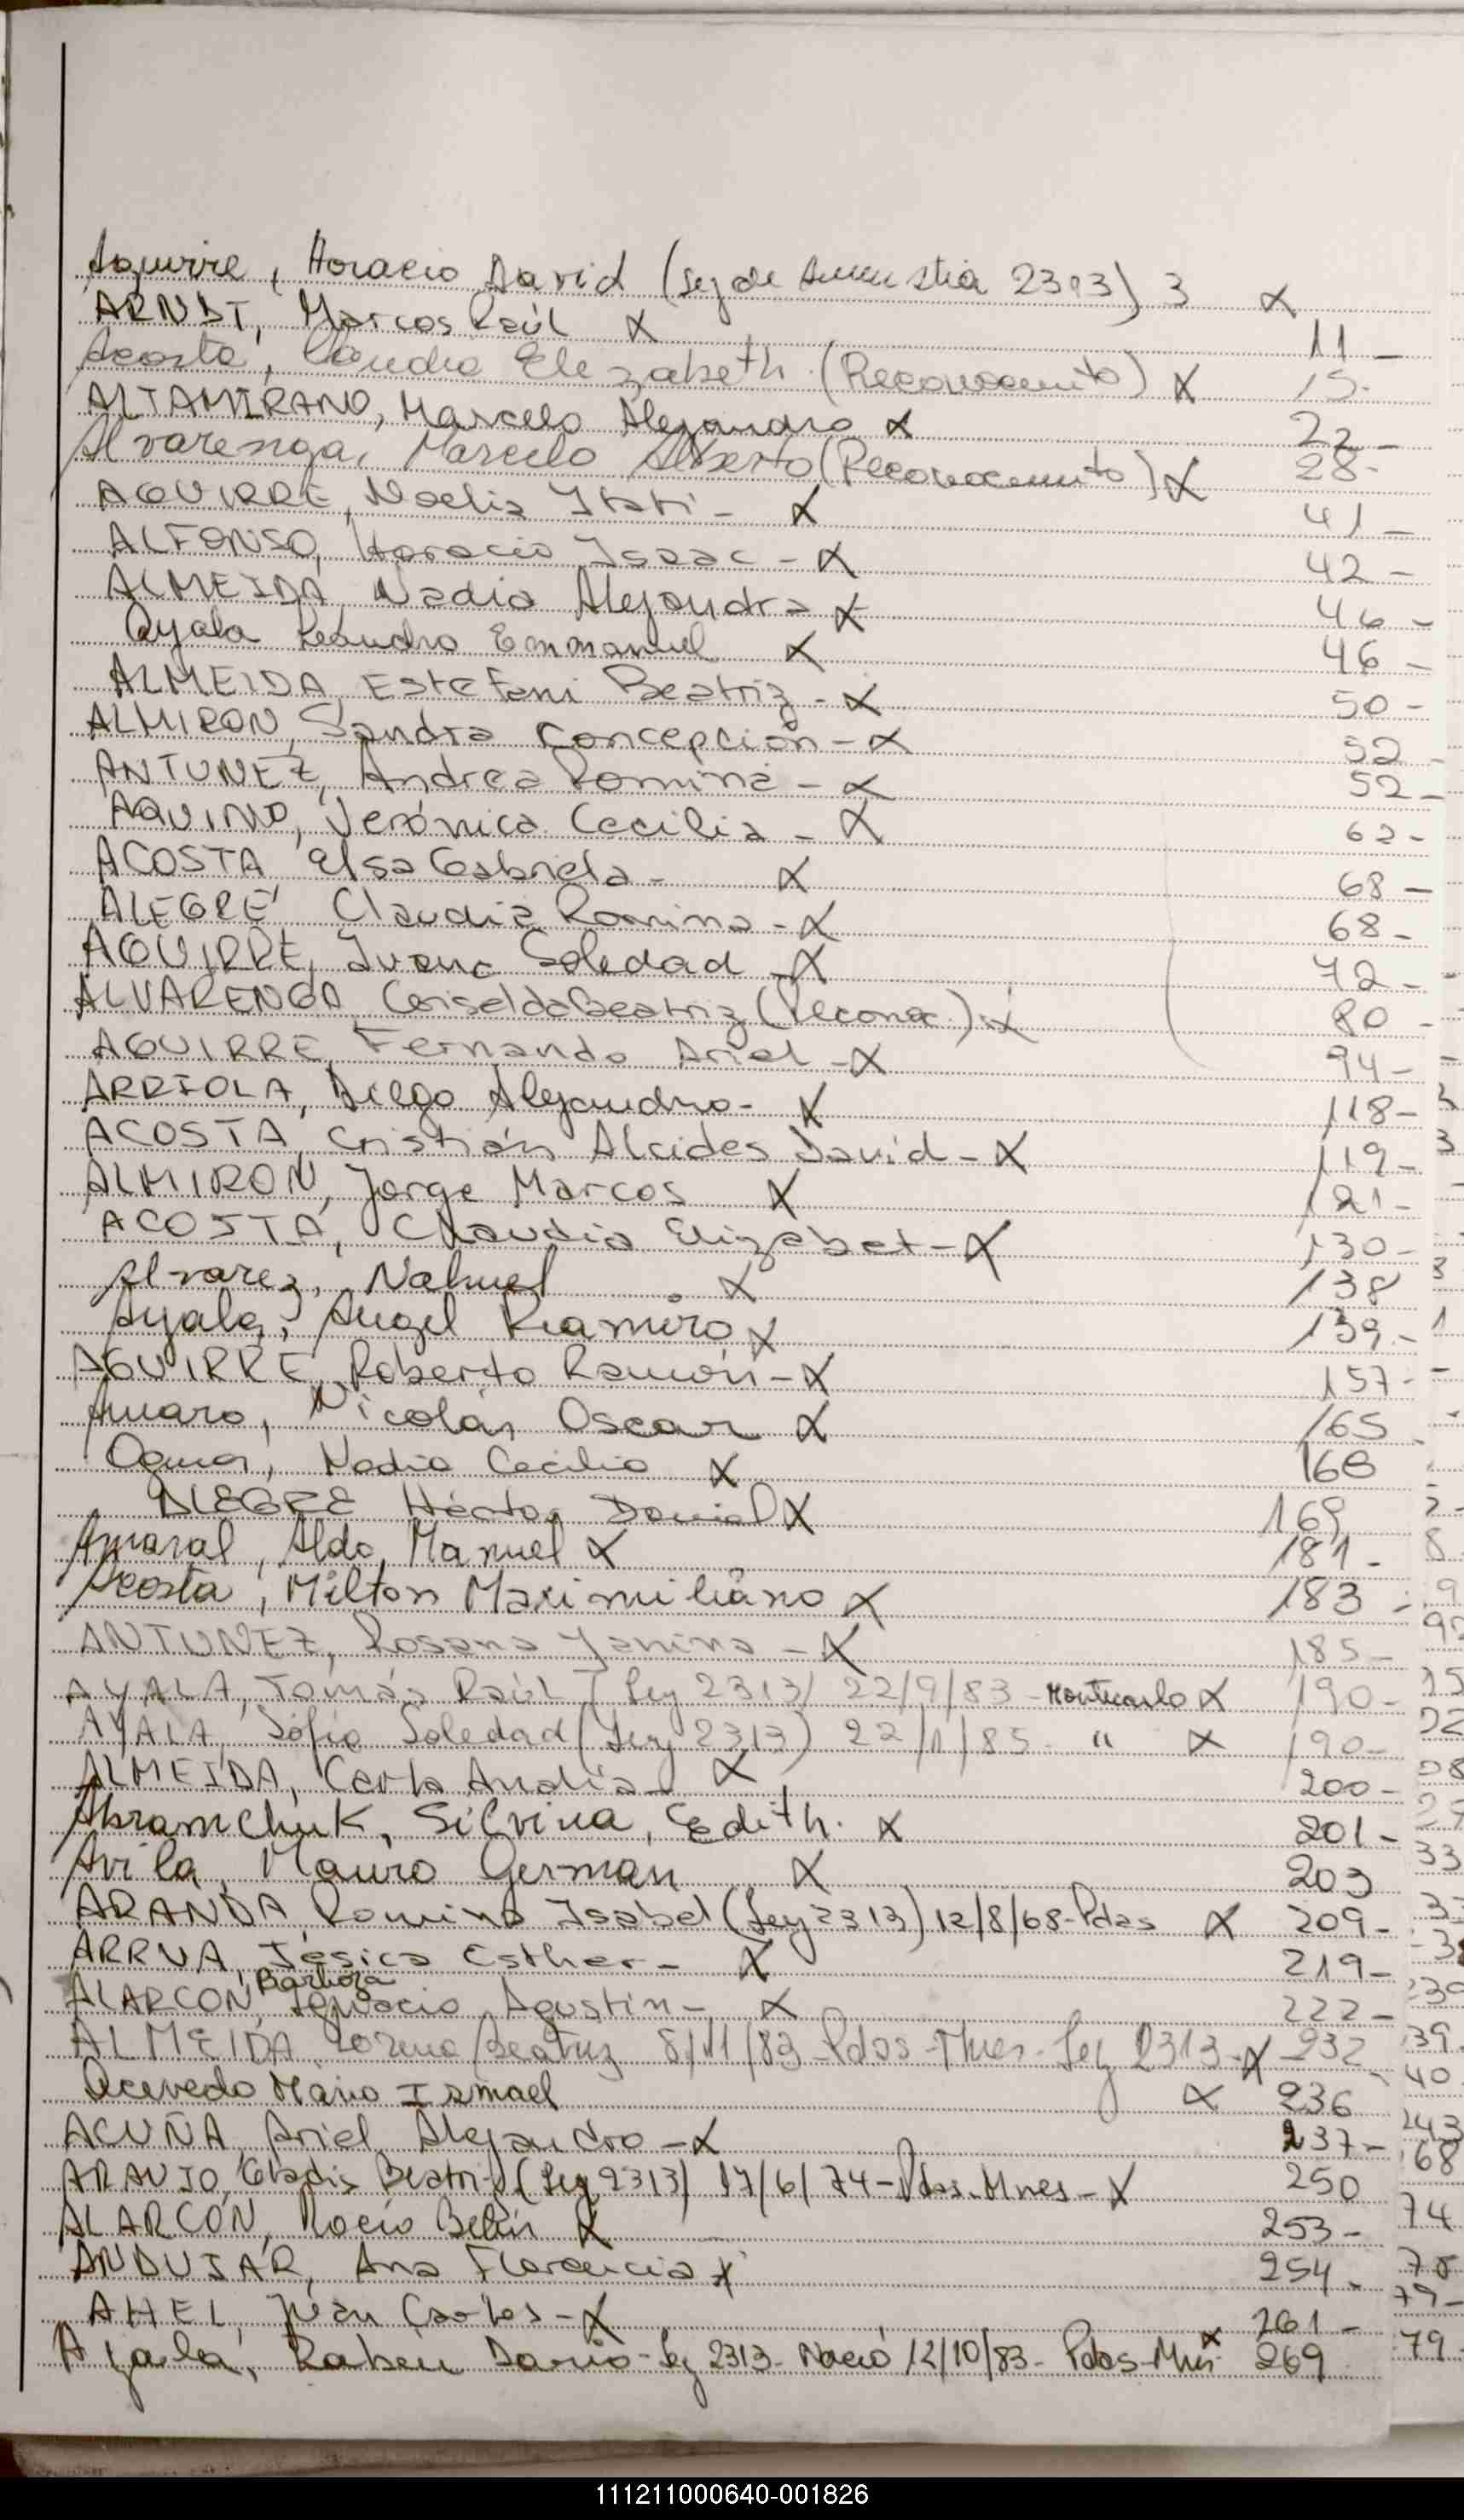 Aguirre, Horacio David (Ley de Amnistia 2393) 3 X
ARNDT, Marcos Raúl X 11 -
Acosta, Claudia Elezabeth (Reconocimiento) X 15.
ALTAMIRANO, Marcelo Alejandro X 22 -
Alvarenga, Marcelo Alberto (Reconocimiento) X 28-
AGUIRRE, Noelia Itati - X 41 -
ALFONSO, Horacio Isaac - X 42 -
ALMEIDA, Nadia Alejandra X 46 -
Ayala Leandro Emmanuel X 46 -
ALMEIDA, Estefani Beatriz - X 50 -
ALMIRON, Sandra Concepción - X 52 -
ANTUNEZ, Andrea Romina - X 52 -
AQUINO, Verónica Cecilia - X 62 -
ACOSTA Elsa Gabriela - X 68 -
ALEGRE Claudia Romina - X 68 -
AGUIRRE, Ivana Soledad - X 72 -
ALVARENGA, Griselda Beatriz (Reconoc.) X 80 -
AGUIRRE, Fernando Ariel - X 94 -
ARRIOLA, Diego Alejandro - X 118 -
ACOSTA, Cristián Alcides David - X 119 -
ALMIRON, Jorge Marcos X 121 -
ACOSTA, Claudia Elizabet - X 130 -
Alvarez, Nahuel X 138
Ayala, Angel Ramiro X 139 -
AGUIRRE, Roberto Ramón - X 157 -
Amaro, Nicolás Oscar X 165
Nadia Cecilia X 168
ALEGRE Héctor Daniel X 169
Amaral, Aldo Manuel X 181 -
Acosta, Milton Maximiliano X 183 -
ANTUNEZ, Rosana Yanina - X 185 -
AYALA, Tomás Raúl (Ley 2313) 22/9/83 - Montecarlo X 190 -
AYALA, Sofía Soledad (Ley 2313) 22/1/85 - " X 190 -
ALMEIDA, Carla Analía - X 200 -
Abramchuk, Silvina, Edith. X 201 -
Avila, Mauro German X 203
ARANDA, Romina Isabel (Ley 2313) 12/8/68 - Pdas X 209 -
ARRUA, Jésica Esther - X 219 -
Barboza
ALARCON, Ignacio Agustín - X 222 -
ALMEIDA, Lorena Beatriz 8/11/83 - Pdas - Mnes - Ley 2313 - X 232
Acevedo Mario Ismael X 236
ACUÑA, Ariel Alejandro - X 237 -
ARAUJO, Gladis Beatriz (Ley 2313) 17/6/74 - Pdas. Mnes - X 250
ALARCÓN, Rocío Belén X 253 -
ANDUJAR, Ana Florencia X 254 -
AHEL, Juan Carlos - X 261 -
Ayala, Rubén Darío - Ley 2313 - Nació 12/10/83 - Pdas - Mnes X 269
111211000640-001826